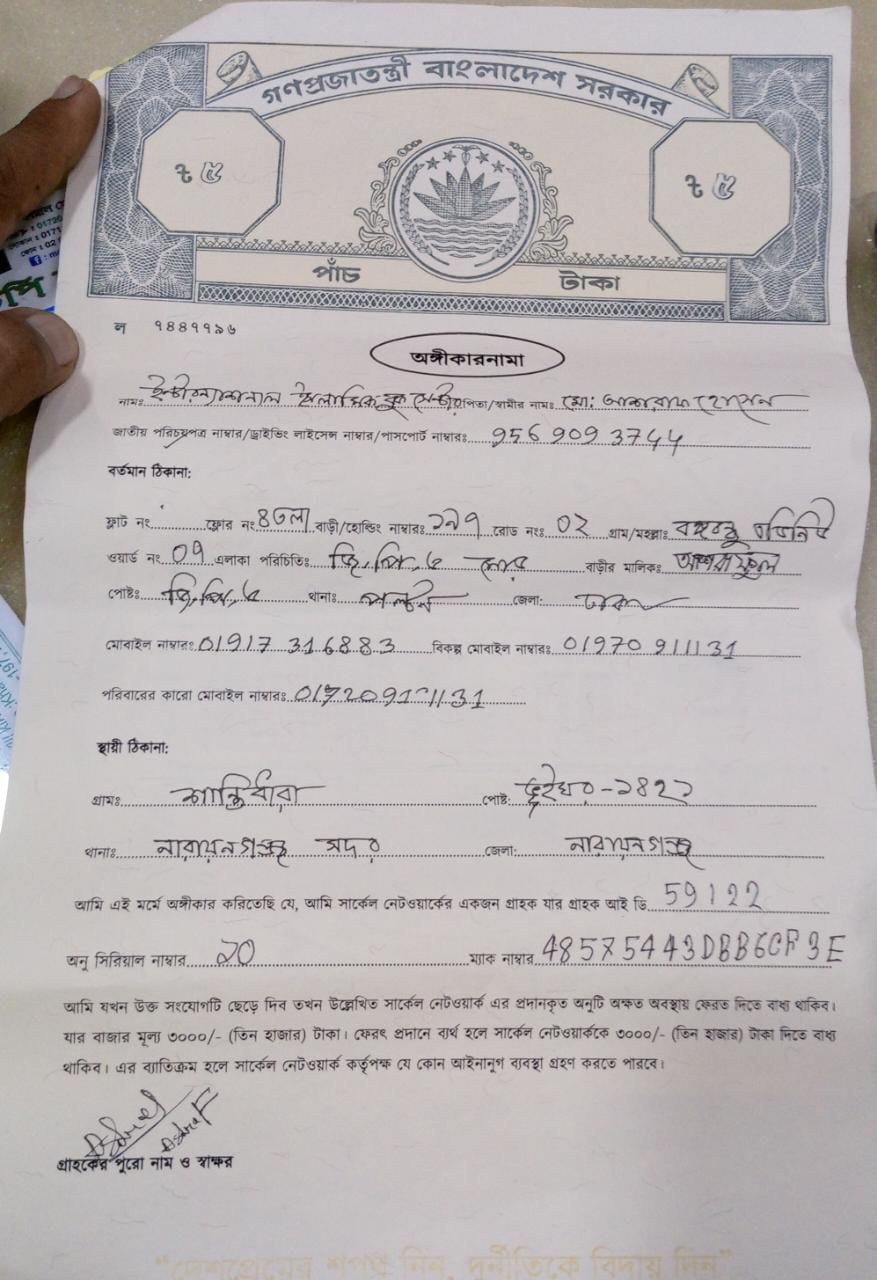 গণপ্রজাতন্ত্রী বাংলাদেশ সরকার
৳ ৫ ৳ ৫
পাঁচ টাকা
ল ৭৪৪৭৭৯৬
অঙ্গীকারনামা
নামঃ ইন্টারন্যাশনাল ইসলামিক বুক সেন্টার পিতা/স্বামীর নাম: মো: আশরাফ হোসেন
জাতীয় পরিচয়পত্র নাম্বার/ড্রাইভিং লাইসেন্স নাম্বার/পাসপোর্ট নাম্বারঃ 956 909 3744
বর্তমান ঠিকানা:
ফ্লাট নং ফ্লোর নং ৪তলা বাড়ী/হোল্ডিং নাম্বারঃ ১৯৭ রোড নংঃ ০২ গ্রাম/মহল্লাঃ বঙ্গবন্ধু এভিনিউ
ওয়ার্ড নং ০৭ এলাকা পরিচিতিঃ জি.পি.ও বাড়ীর মালিকঃ
পোষ্টঃ জি.পি.ও থানাঃ পল্টন জেলা: ঢাকা
মোবাইল নাম্বারঃ 01917 316883 বিকল্প মোবাইল নাম্বারঃ 01970 911131
পরিবারের কারো মোবাইল নাম্বারঃ
স্থায়ী ঠিকানা:
গ্রামঃ শান্তিধারা পোষ্ট: ভূইঘর-১৪২১
থানাঃ নারায়নগঞ্জ সদর জেলা: নারায়নগঞ্জ
আমি এই মর্মে অঙ্গীকার করিতেছি যে, আমি সার্কেল নেটওয়ার্কের একজন গ্রাহক যার গ্রাহক আই ডি 59122
অনু সিরিয়াল নাম্বার ১০ ম্যাক নাম্বার 48575443DBB6CF3E
আমি যখন উক্ত সংযোগটি ছেড়ে দিব তখন উল্লেখিত সার্কেল নেটওয়ার্ক এর প্রদানকৃত অনুটি অক্ষত অবস্থায় ফেরত দিতে বাধ্য থাকিব।
যার বাজার মূল্য ৩০০০/- (তিন হাজার) টাকা। ফেরৎ প্রদানে ব্যর্থ হলে সার্কেল নেটওয়ার্ককে ৩০০০/- (তিন হাজার) টাকা দিতে বাধ্য
থাকিব। এর ব্যাতিক্রম হলে সার্কেল নেটওয়ার্ক কর্তৃপক্ষ যে কোন আইনানুগ ব্যবস্থা গ্রহণ করতে পারবে।
Ashraf
Ashraf
গ্রাহকের পুরো নাম ও স্বাক্ষর
"দেশপ্রেমের শপথ নিন, দুর্নীতিকে বিদায় দিন"